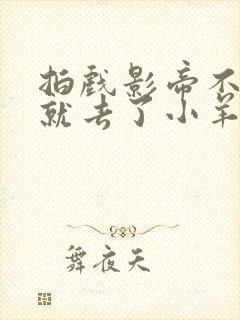 拍戏影帝不
就去了小羊
舞夜天